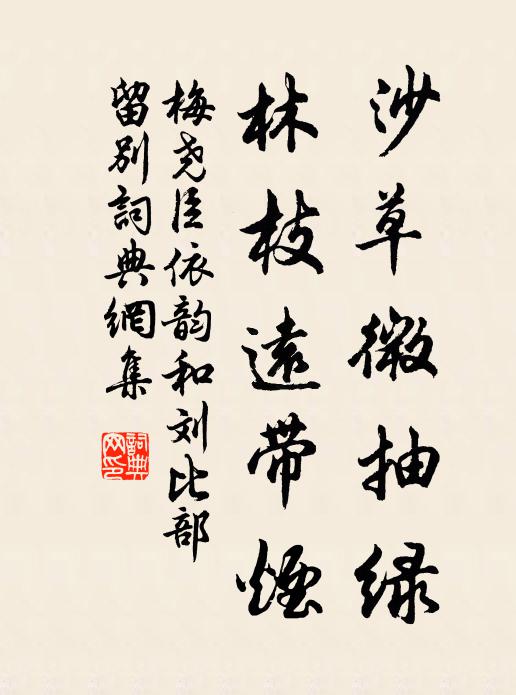 沙草微抽绿
林枝遠帶煙
梅尧臣依韵和刘比部
留别詞典網集
詞典
网印